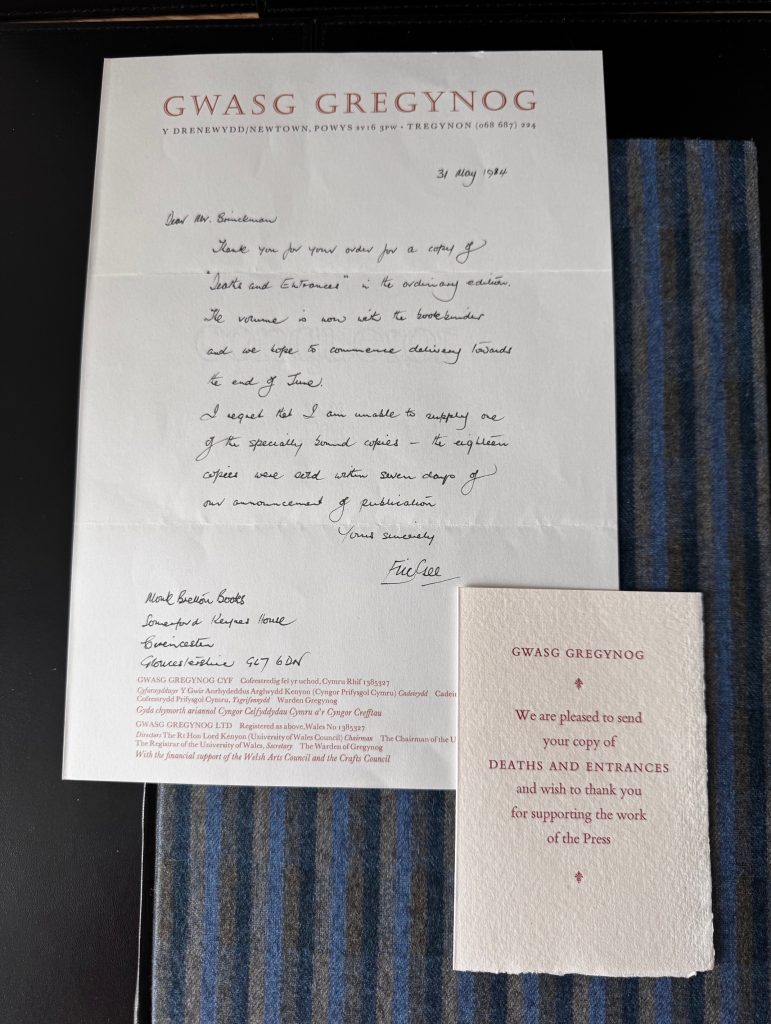 GWASG GREGYNOG
Y DRENEWYDD/NEWTOWN, POWYS SY16 3PW · TREGYNON (068 687) 224
31 May 1984
Dear Mr. Brinckman
Thank you for your order for a copy of
"Deaths and Entrances" in the ordinary edition.
The volume is now with the bookbinder
and we hope to commence delivery towards
the end of June.
I regret that I am unable to supply one
of the specially bound copies – the eighteen
copies were sold within seven days of
our announcement of publication
Yours sincerely
Eric Gee
Monk Bretton Books
Somerford Keynes House
Cirencester
Gloucestershire GL7 6DN
GWASG GREGYNOG CYF Cofrestredig fel yr uchod, Cymru Rhif 1385327
Cyfarwyddwyr Y Gwir Anrhydeddus Arglwydd Kenyon (Cyngor Prifysgol Cymru) Cadeirydd Cadeir
Cofrestrydd Prifysgol Cymru, Ysgrifennydd Warden Gregynog
Gyda chymorth ariannol Cyngor Celfyddydau Cymru a'r Cyngor Crefftau
GWASG GREGYNOG LTD Registered as above, Wales No 1385327
Directors The Rt Hon Lord Kenyon (University of Wales Council) Chairman The Chairman of the U
The Registrar of the University of Wales, Secretary The Warden of Gregynog
With the financial support of the Welsh Arts Council and the Crafts Council
GWASG GREGYNOG
We are pleased to send
your copy of
DEATHS AND ENTRANCES
and wish to thank you
for supporting the work
of the Press